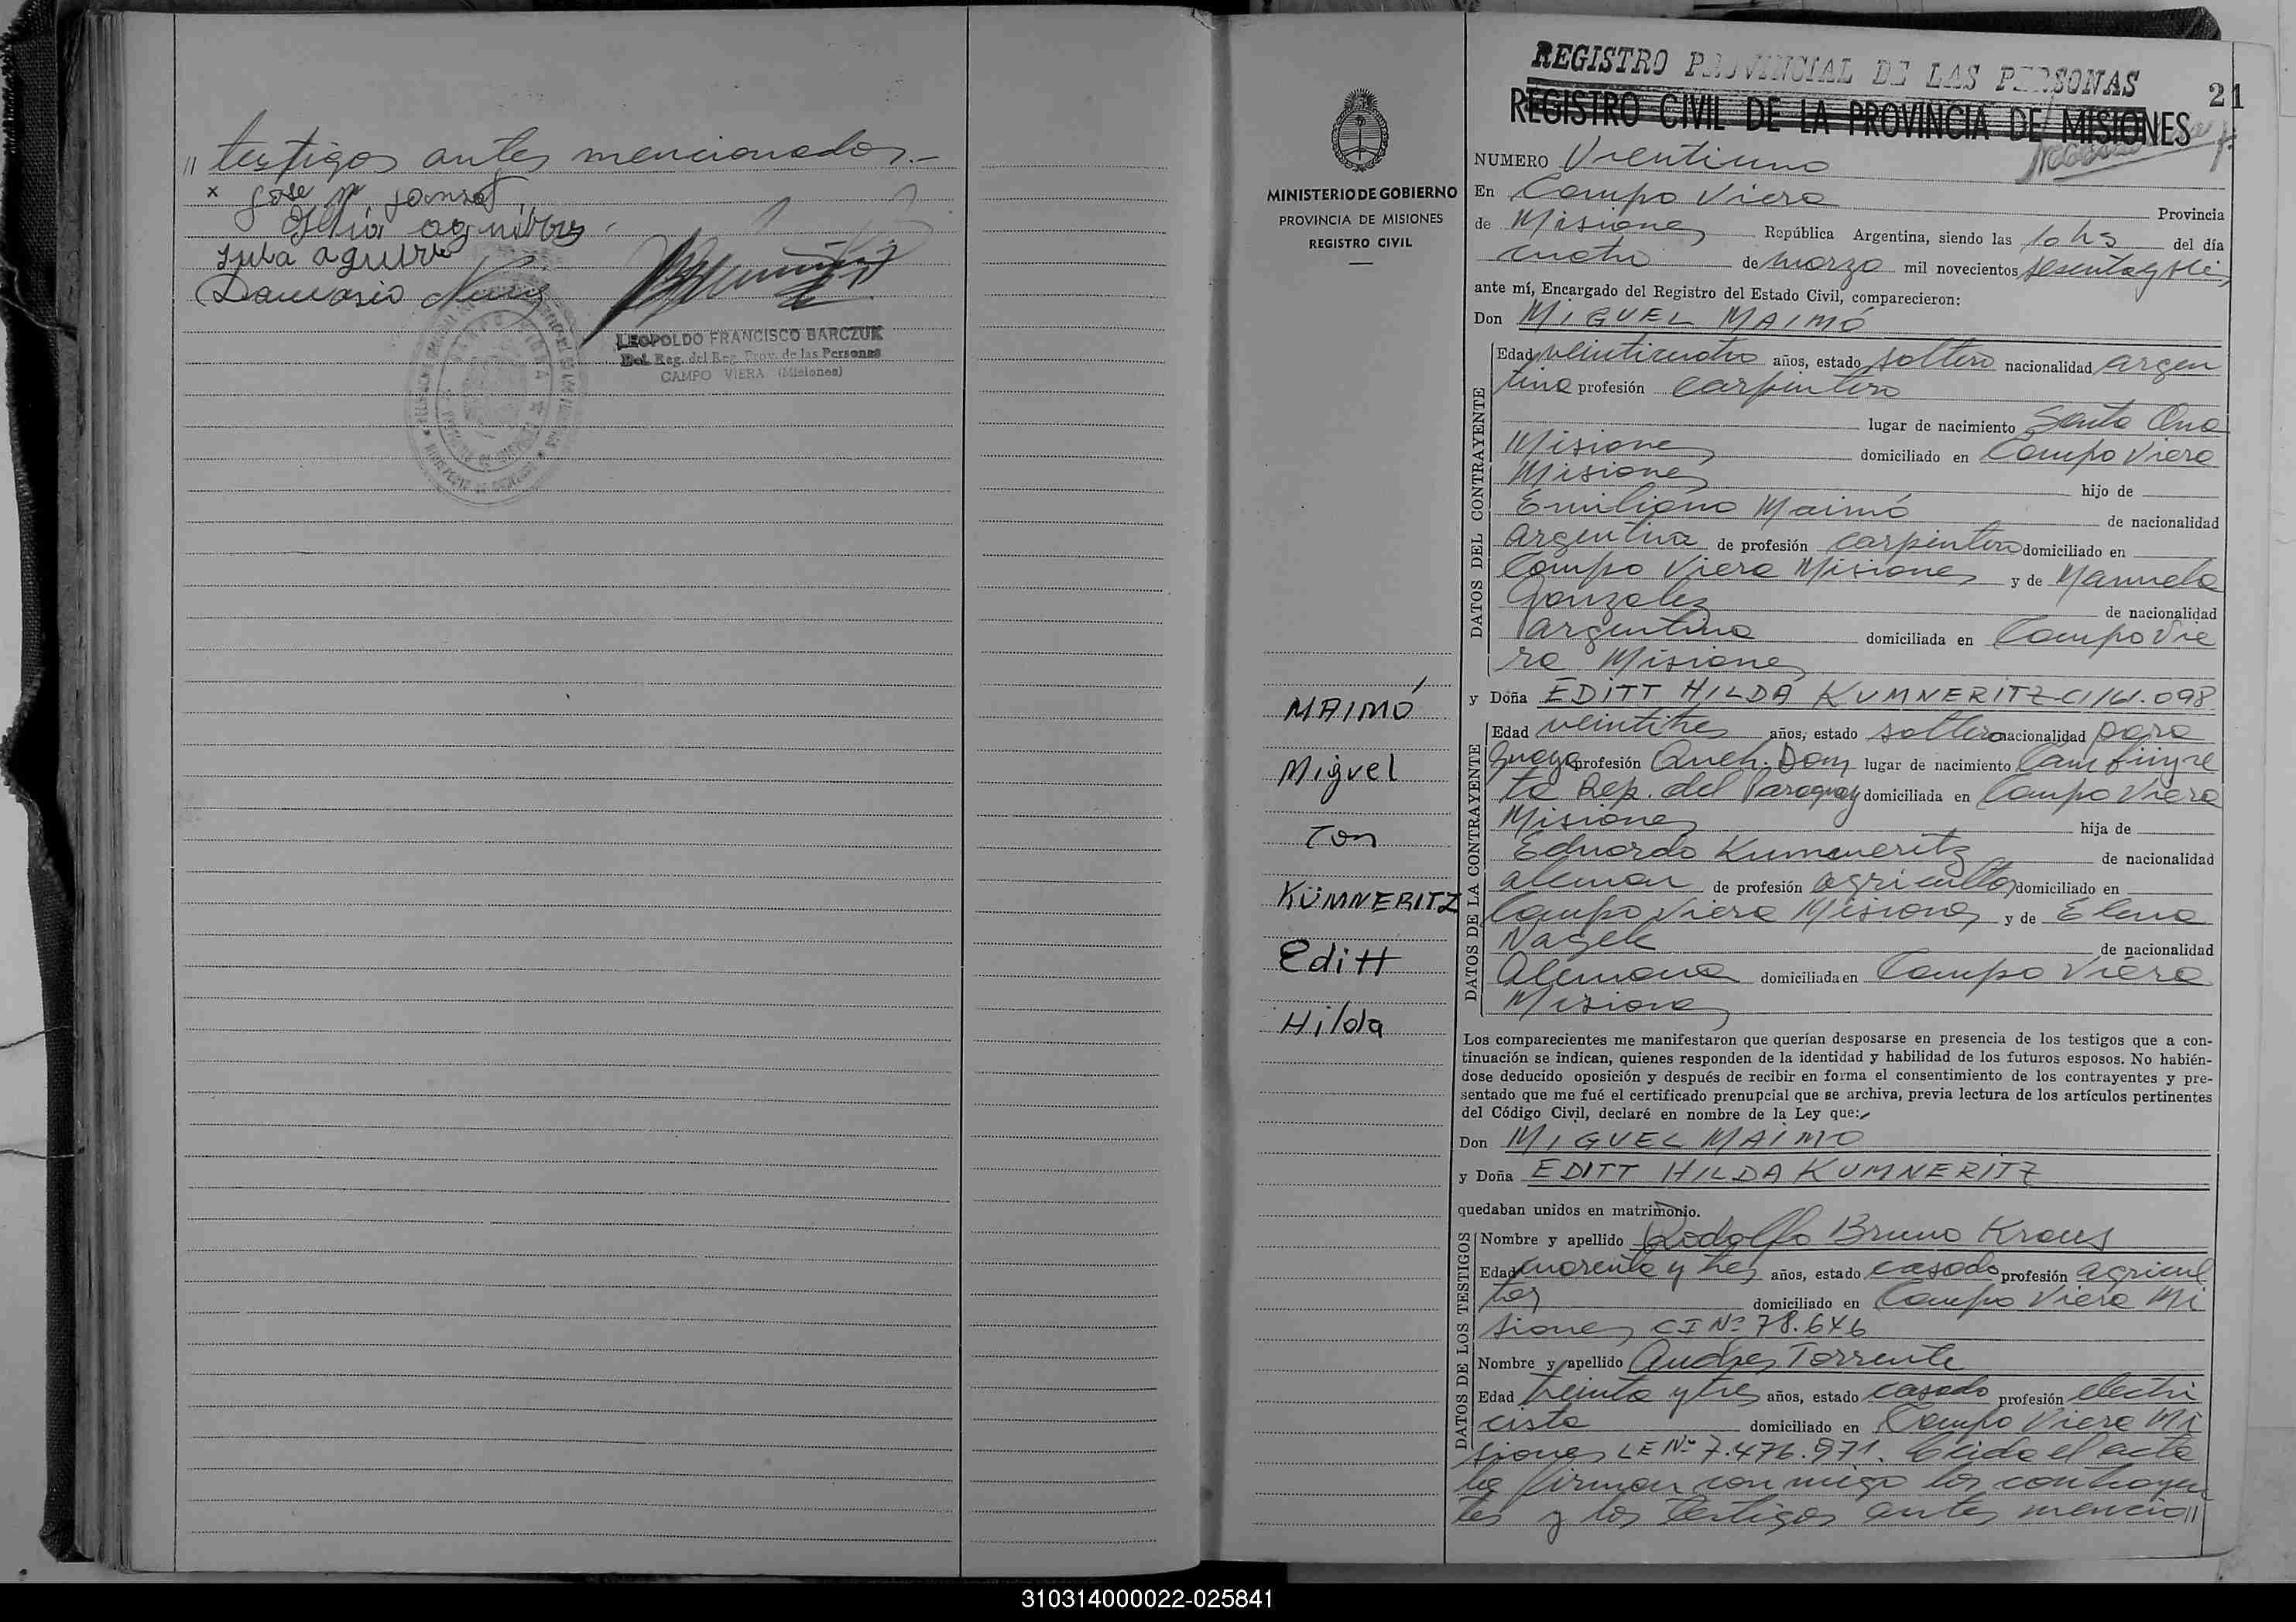 // testigos antes mencionados.-
x Jose
Julia aguirre
Damasio Nuñez
LEOPOLDO FRANCISCO BARCZUK
Del. Reg. del Reg. Prov. de las Personas
CAMPO VIERA (Misiones)
REGISTRO PROVINCIAL DE LAS PERSONAS
21
REGISTRO CIVIL DE LA PROVINCIA DE MISIONES
MINISTERIO DE GOBIERNO
PROVINCIA DE MISIONES
REGISTRO CIVIL
MAIMÓ
Miguel
Con
KÜMNERITZ
Editt
Hilda
NUMERO Vientiuno
En Campo Viera Provincia
de Misiones República Argentina, siendo las 10 hs del día
cuatro de marzo mil novecientos sesentayseis
ante mí, Encargado del Registro del Estado Civil, comparecieron:
Don MIGUEL MAIMÓ
DATOS DEL CONTRAYENTE
Edad veinticuatro años, estado soltero nacionalidad argen
tina profesión carpintero
lugar de nacimiento Santa Ana
Misiones domiciliado en Campo Viera
Misiones hijo de
Emiliano Maimó de nacionalidad
argentina de profesión carpintero domiciliado en
Campo Viera Misiones y de Manuela
Gonzalez de nacionalidad
argentina domiciliada en Campo Vie
ra Misiones
y Doña EDITT HILDA KUMNERITZ CI 161.098
DATOS DE LA CONTRAYENTE
Edad veintitres años, estado soltera nacionalidad para
guaya profesión Queh. Dom lugar de nacimiento Cambuyre
ta Rep. del Paraguay domiciliada en Campo Viera
Misiones hija de
Eduardo Kumneritz de nacionalidad
aleman de profesión agricultor domiciliado en
Campo Viera Misiones y de Elena
Nagel de nacionalidad
Alemana domiciliada en Campo Viera
Misiones
Los comparecientes me manifestaron que querían desposarse en presencia de los testigos que a con-
tinuación se indican, quienes responden de la identidad y habilidad de los futuros esposos. No habién-
dose deducido oposición y después de recibir en forma el consentimiento de los contrayentes y pre-
sentado que me fué el certificado prenupcial que se archiva, previa lectura de los artículos pertinentes
del Código Civil, declaré en nombre de la Ley que:
Don MIGUEL MAIMO
y Doña EDITT HILDA KUMNERITZ
quedaban unidos en matrimonio.
DATOS DE LOS TESTIGOS
Nombre y apellido Rodolfo Bruno Kraus
Edad cuarenta y tres años, estado casado profesión agricul
tor domiciliado en Campo Viera Mi
siones CI Nº 78.646
Nombre y apellido Andres Torrente
Edad treinta y tres años, estado casado profesión electri
cista domiciliado en Campo Viera Mi
siones LE Nº 7.476.971. Leida el acta
la firman con migo los contrayen
tes y los testigos antes mencio//
310314000022-025841